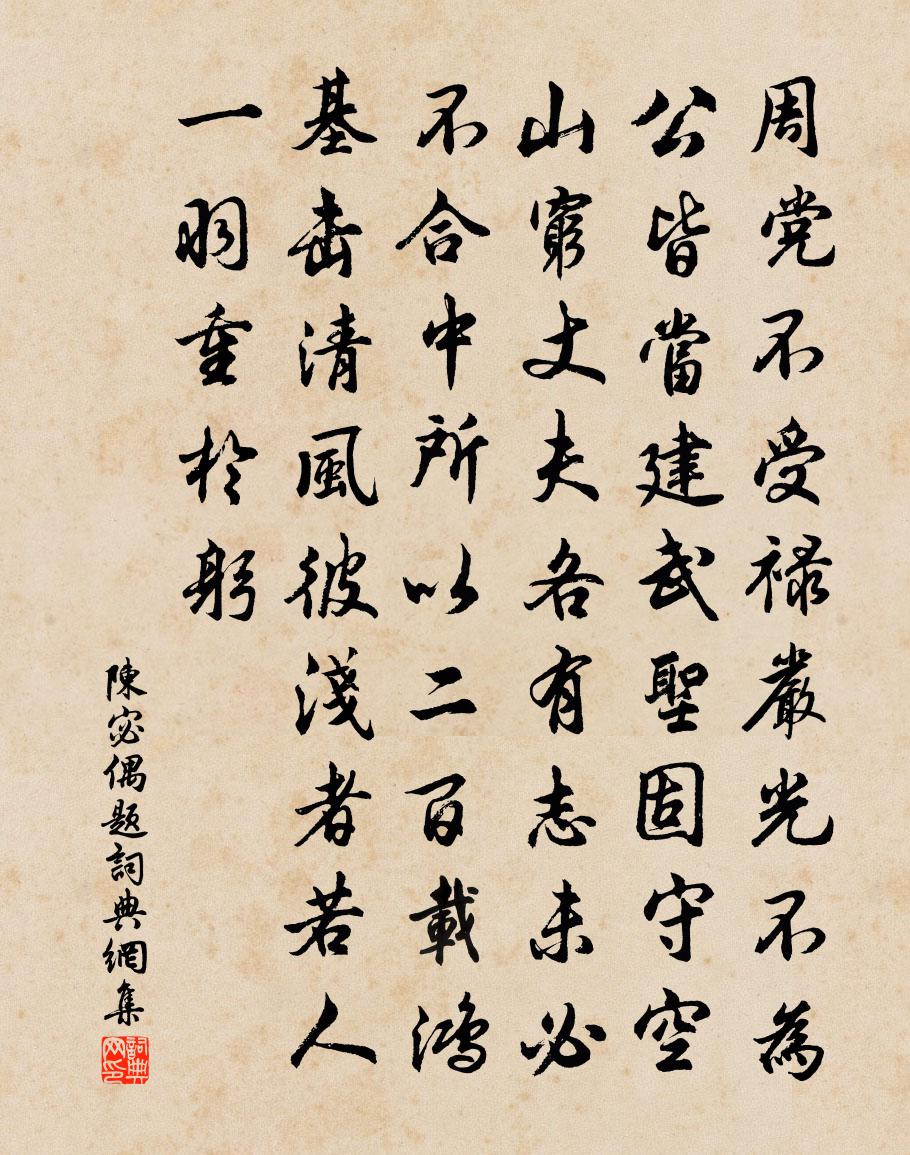 周党不受禄嚴光不為
公皆當建武聖固守空
山窮丈夫各有志未必
不合中所以二百載鴻
基击清風彼淺者若人
一羽重於躬
陳宓偶題詞典網集
詞典网印